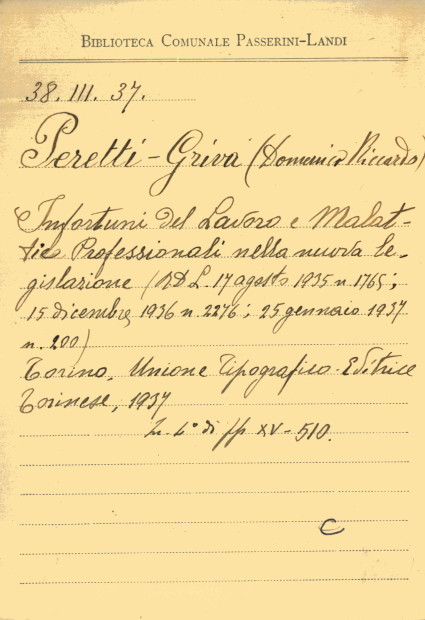 BIBLIOTECA COMUNALE PASSERINI-LANDI
38. III. 37.
Peretti-Griva (Domenico Riccardo)
Infortuni del Lavoro e Malat-
tie Professionali nella nuova le-
gislazione (R.D.L. 17 agosto 1935 n. 1765;
15 dicembre 1936 n. 2276; 25 gennaio 1937
n. 200)
Torino, Unione Tipografico-Editrice
Torinese, 1937
In 4° di pp XV-510.
C